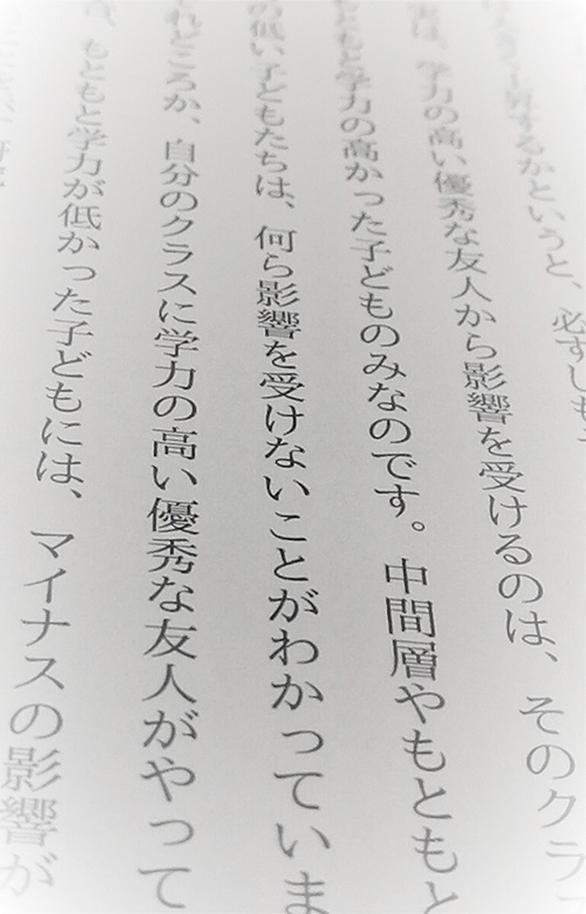 するかというと、必ずしも
は、学力の高い優秀な友人から影響を受けるのは、そのクラ
もともと学力の高かった子どものみなのです。中間層やもともと
の低い子どもたちは、何ら影響を受けないことがわかっていま
れどころか、自分のクラスに学力の高い優秀な友人がやって
、もともと学力が低かった子どもには、マイナスの影響が